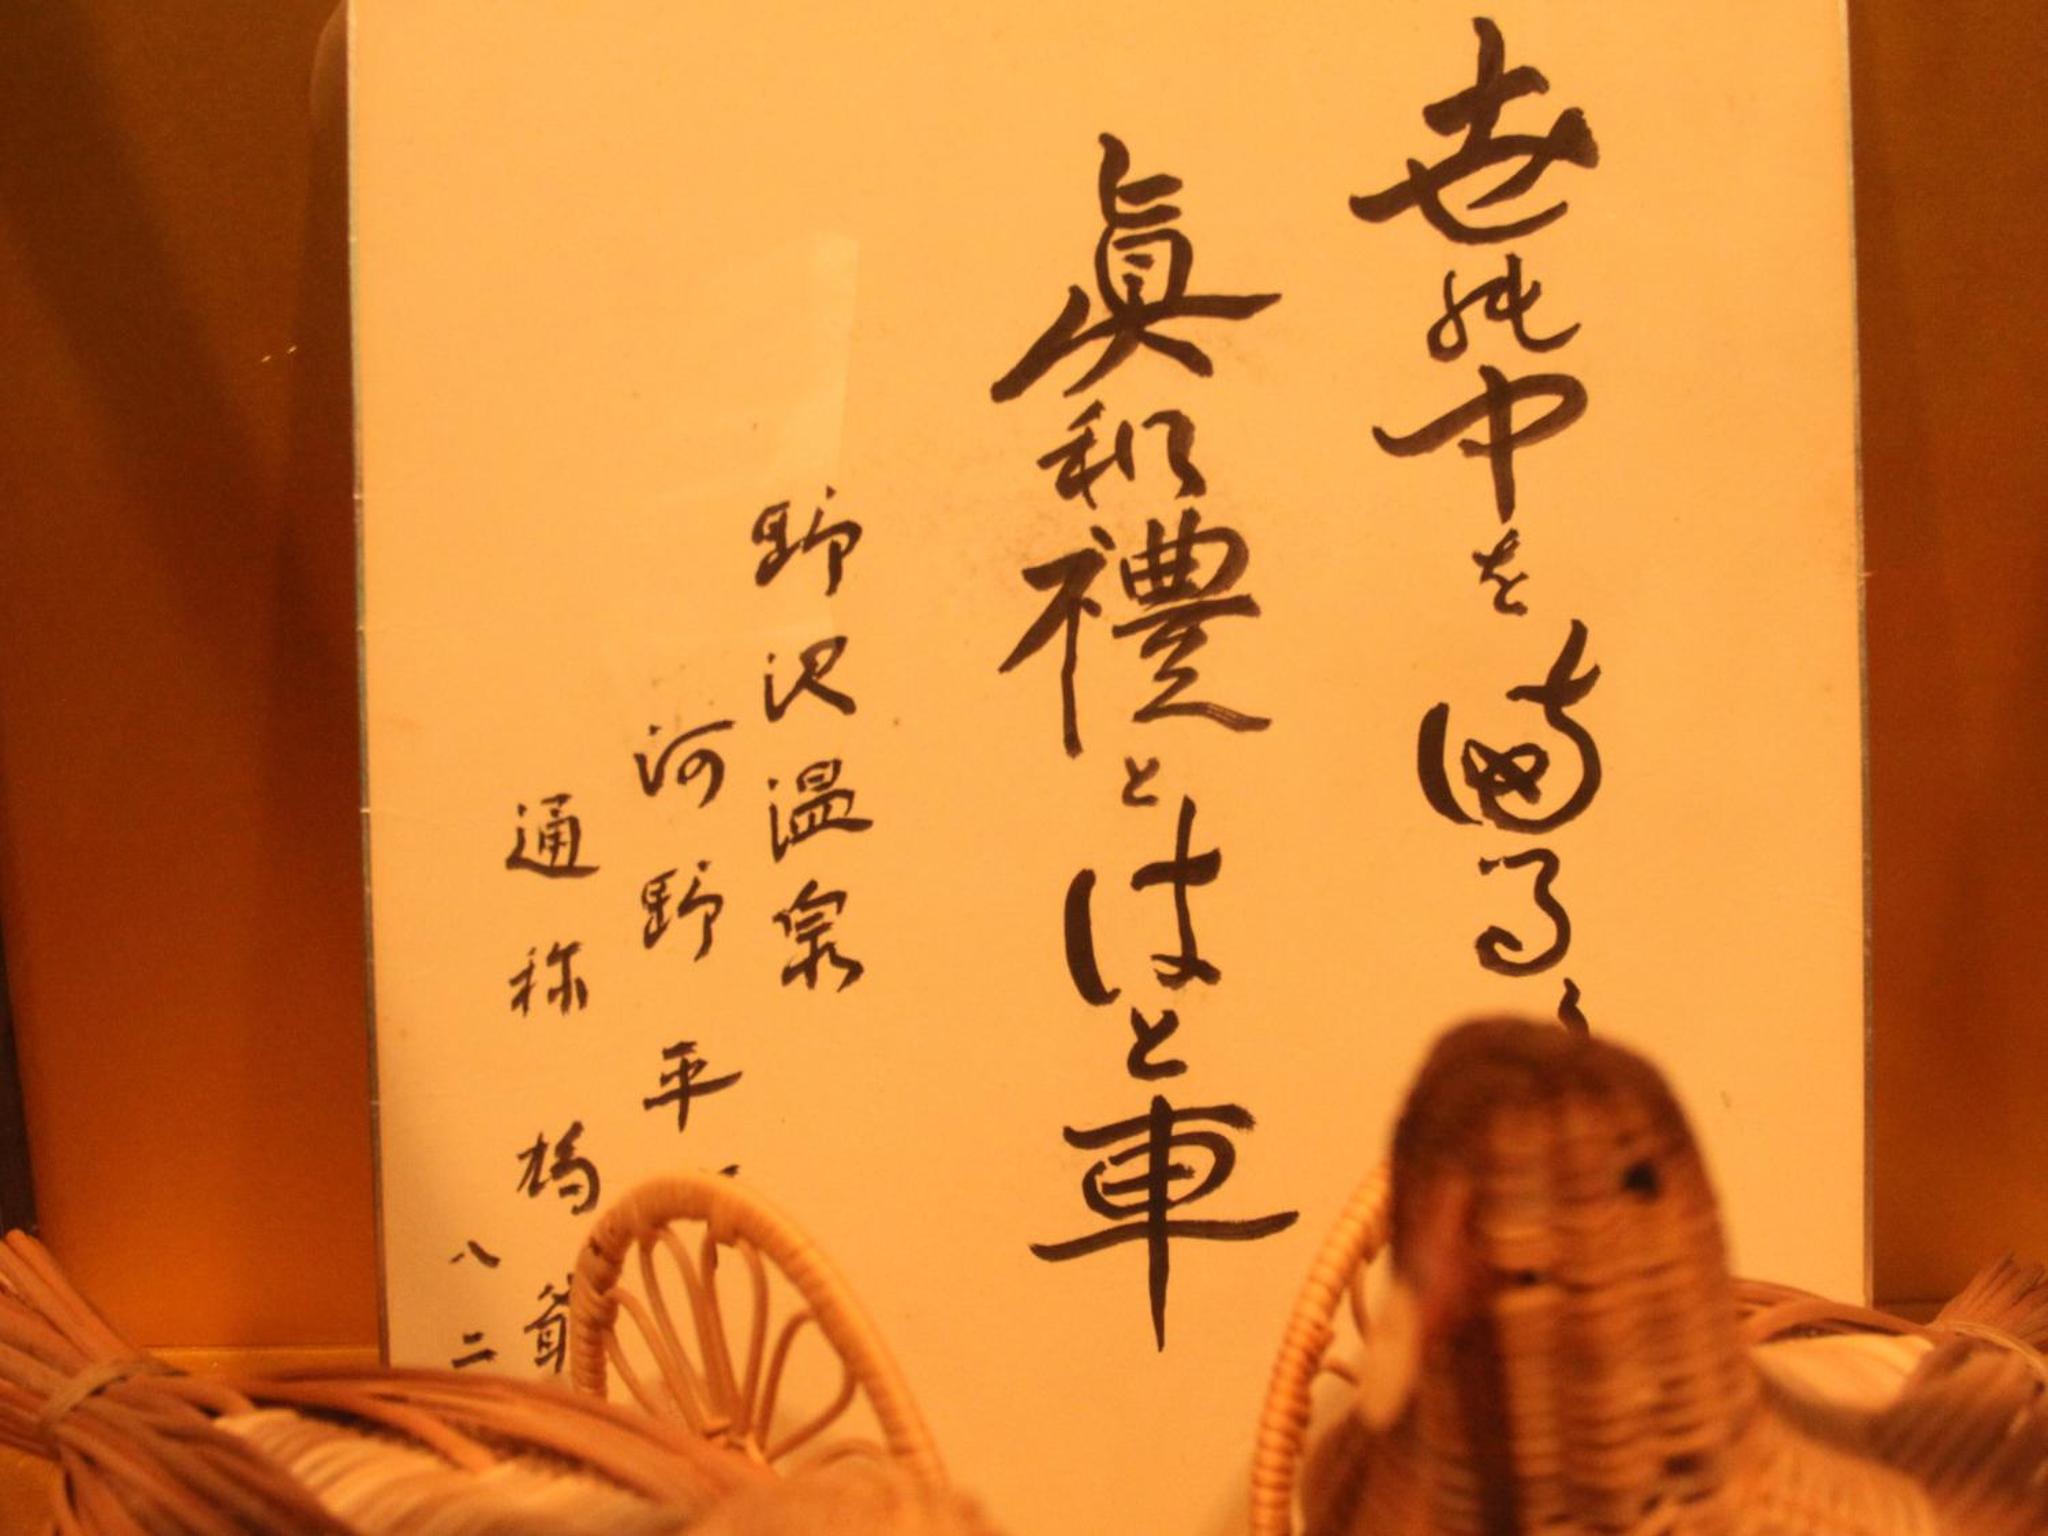 世能中を満る
眞和禮とはと車
野沢温泉
河野 平
通称 橋
八二